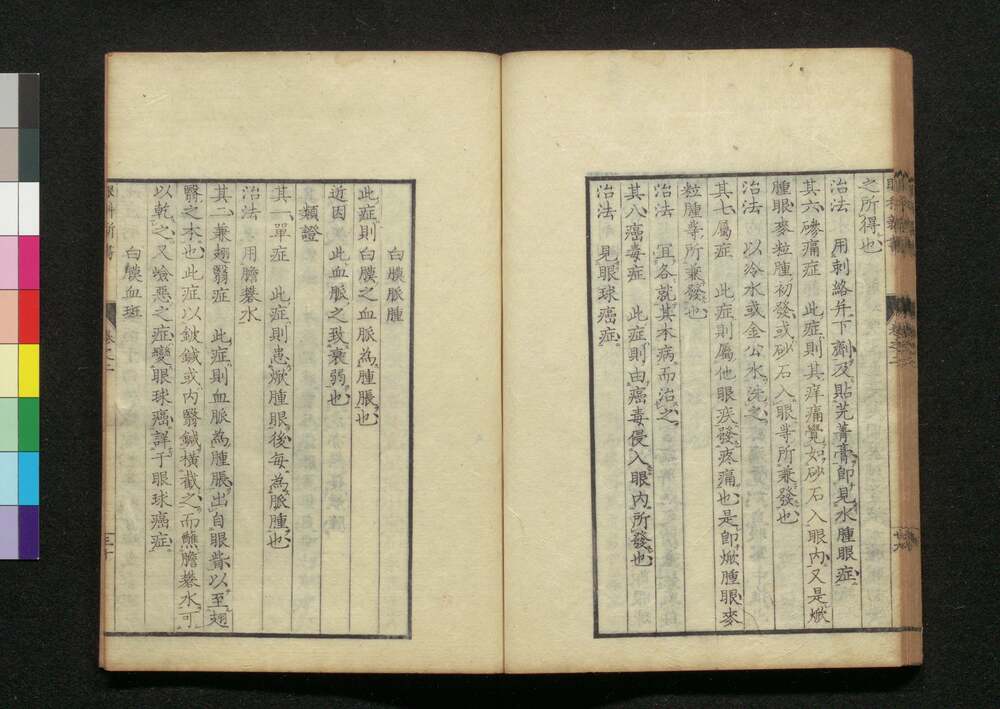 之所得也
治法　用刺絡并下劑及貼芫菁膏卽見水腫眼症
其六磣痛症　此症則其痒痛覺如砂石入眼內又是焮
腫眼麥粒腫初發或砂石入眼等所兼發也
治法　以冷水或金公水洗之
其七屬症　此症則屬他眼疾發疼痛也是卽焮腫眼麥
粒腫等所兼發也
治法　宜各就其本病而治之
其八癌毒症　此症則由癌毒侵入眼內所發也
治法　見眼球癌症
白膜脈腫
此症則白膜之血脈為腫脹也
近因　此血脈之致衰弱也
類證
其一單症　此症則患焮腫眼後每為脈腫也
治法　用膽礬水
其二兼翅翳症　此症則血脈為腫脹出自眼眥以至翅
翳之本也此症以鈹鍼或內翳鍼橫截之而蘸膽礬水可
以乾之又嶮惡之症變眼球癌詳于眼球癌症
白膜血斑
眼科新書
卷之二
三十